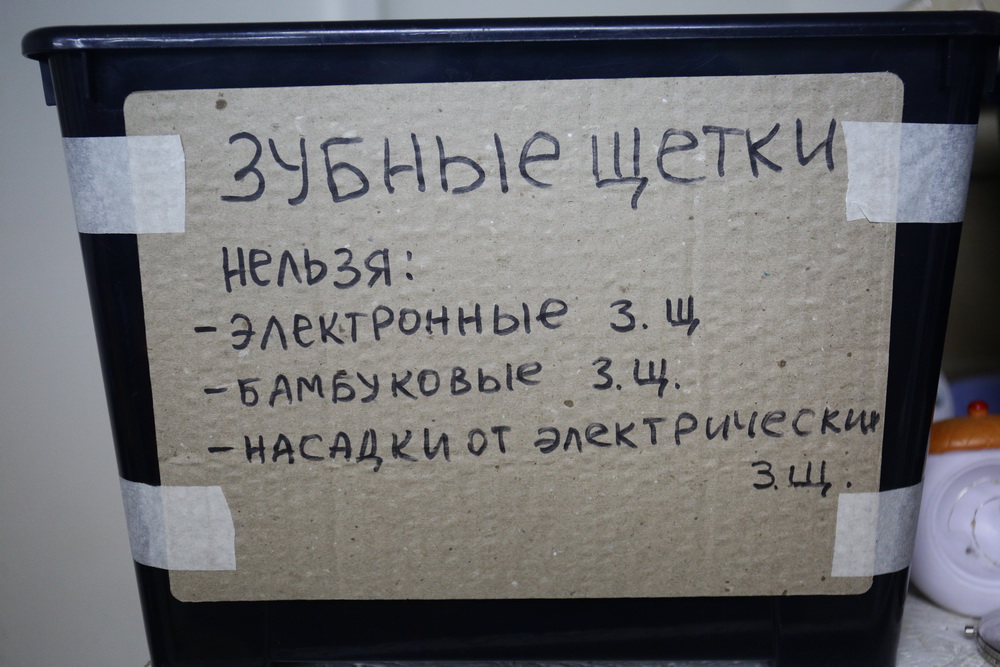 ЗУБНЫЕ ЩЕТКИ
НЕЛЬЗЯ:
- ЭЛЕКТРОННЫЕ З. Щ
- БАМБУКОВЫЕ З.Щ.
- НАСАДКИ ОТ ЭЛЕКТРИЧЕСКИХ
З.Щ.